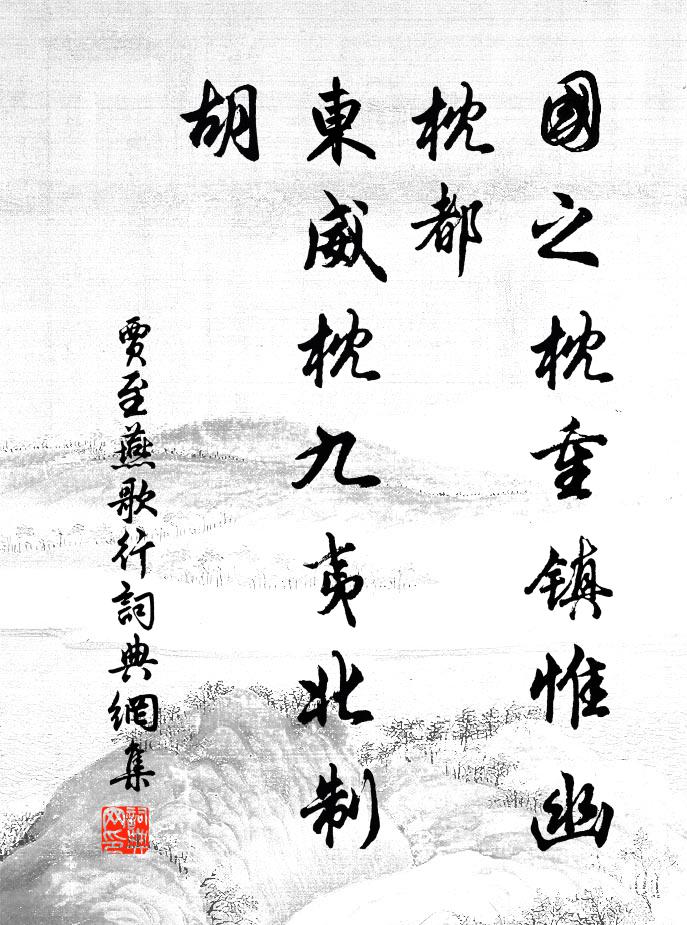 國之枕重鎮惟幽
枕都
東威枕九夷北制
胡
賈至燕歌行詞典網集
詞典
网印